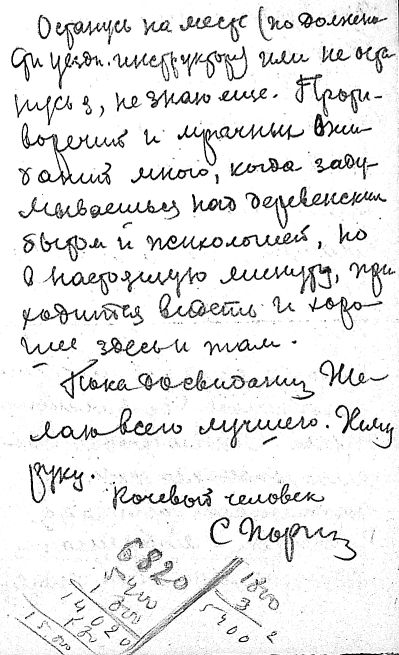 Останусь на месте (по должно-
сти уездн. инструктора) или не оста-
нусь я, не знаю еще. Проти-
воречий и мрачных ожи-
даний много, когда заду-
мываешься над деревенским
бытом и психологией, но
в настоящую минуту, при
ходится видеть и хоро-
шее здесь и там.
Пока досвидания Же-
лаю всего лучшего. Жму
руку.
Кочевой человек
С
6820
5400
1800
14020
1800
3
5400